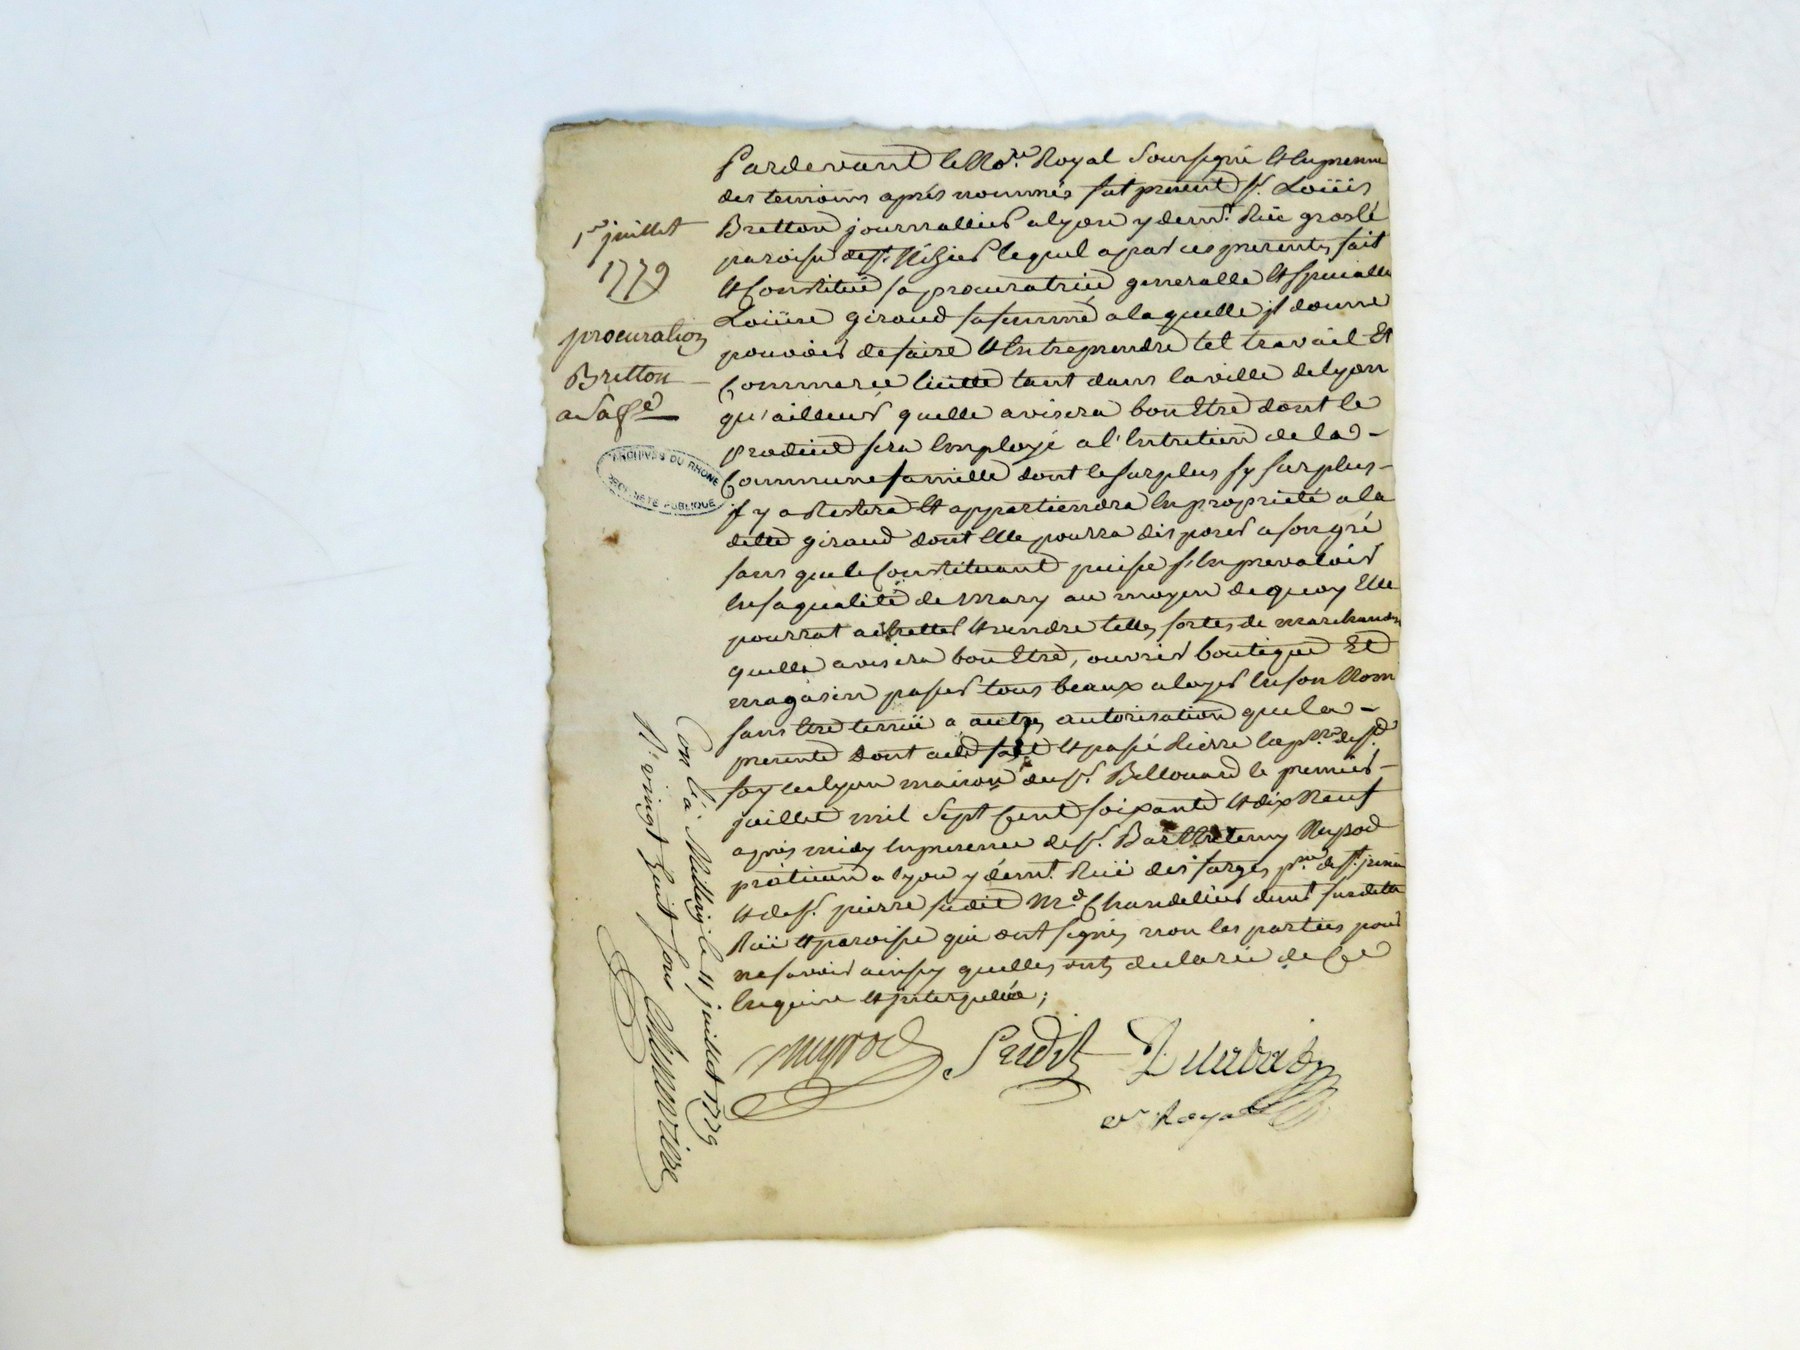 1er juillet
1779
procuration
Bretton
a sa fe
ARCHIVES DU RHONE
PROPRIÉTÉ PUBLIQUE
Pardevant le No.re Royal Soussigné Et En presence
des temoins après nommés fut present sr. Loüis
Bretton journallier a lyon y demt. Rüe groslé
paroisse de st. Nizier lequel a par ces presentes fait
Et Constitüé sa procuratrice generalle Et Specialle
Loüise giraud sa femme a laquelle jl donne
pouvoir de faire Et Entreprendre tel travail Et
Commerce licitte tant dans la ville de lyon
qu'ailleurs quelle avisera bon Etre dont le
produit sera Employé a l'Entretien de la
Commune famille dont le surplus sy surplus
jl y a Restera Et appartiendra En propriété a la
ditte giraud dont Elle pourra disposer a son gré
sans que le Constituant puisse s'En prevaloir
En sa qualité de Mary au moyen de quoy Elle
pourrat achetter Et vendre telles sortes de marchandi
quelle avisera bon Etre, ouvrir boutique Et
magasin passer tous beaux a loyer En son Nom
sans Etre tenüe a autres autorisation que la
presente Dont acte fait Et passé
a lyon maison du sr. Bellouard le premier
juillet mil Sept Cent soixante Et dix Neuf
après midy En presence de sr. Barthelemy Neyrod
praticien a lyon y demt. Rüe des farges
Et de sr. pierre Md. Chandelier demt susditte
Rüe Et paroisse qui ont signés non les parties pour
ne savoir ainsy quelles ont declaré de Ce
Enquise Et jnterpellée;
Neyrod
Royal
Con. lé a Millery le 11 juillet 1779
R. vingt huit sous